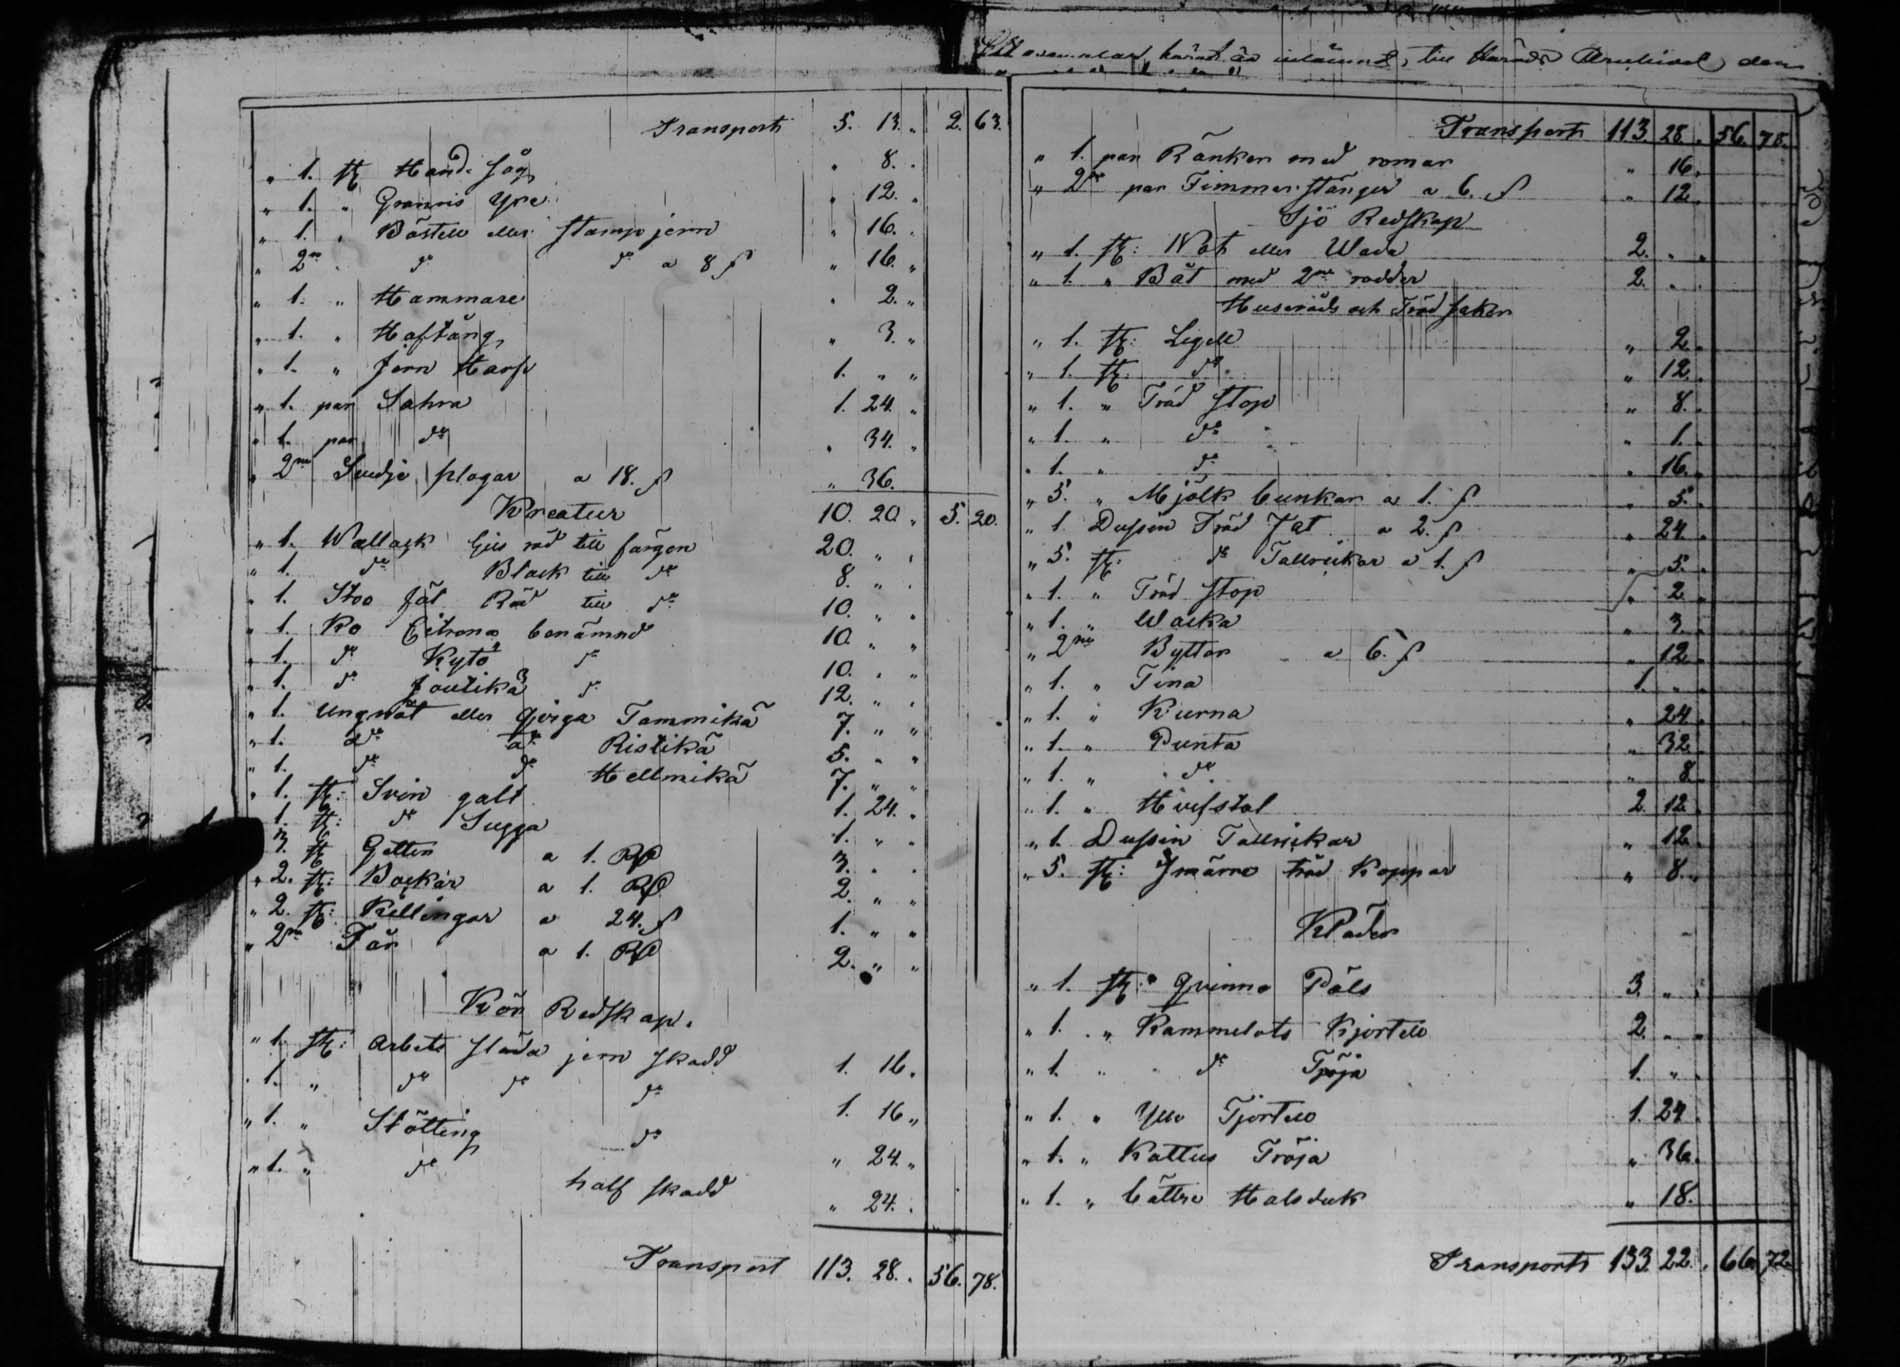 Transport 5. 13. " 2. 63.
" 1. st Hand såg " 8. "
" 1. " Grannis Yxe " 12. "
" 1. " Båstell eller stamp jern " 16. "
" 2ne " do do a 8 s " 16. "
" 1. " Hammare " 2. "
" 1. " Haftång " 3. "
" 1. " Jern Harf 1. " "
" 1. par Sahra 1. 24. "
" 1. par do " 34. "
" 2ne Svedje plogar a 18. s " 36.
Kreatur 10. 20. " 5. 20.
" 1. Wallack till färgen 20. " "
" 1. do Black till do 8. " "
" 1. Stoo föl Röd till do 10. " "
" 1. Ko Citrona benämnd 10. " "
" 1. do Kytö do 10. " "
" 1. do Joulikä do 12. " "
" 1. Ungnöt eller Qviga Tammikä 7. " "
" 1. do do Ristikä 5. " "
" 1. do do Hellmikä 7. " "
" 1. st: Svin galt 1. 24. "
" 1. st: do Sugga 1. " "
3. st Getter a 1. Rd 3. " "
" 2. st: Bockar a 1. Rd 2. " "
" 2. st: Killingar a 24. s 1. " "
" 2ne Får a 1. Rd 2. " "
Kör Redskap.
" 1. st: Arbets släda jern skodd 1. 16.
" 1. " do do do 1. 16 "
" 1. " Stötting do " 24. "
" 1. " do half skodd " 24. "
Transport 113. 28. " 56. 78.
till Härads Archivet den
Transport 113. 28. " 56. 78.
" 1. par Ränkor med romar " 16. "
" 2ne par Timmer stänger a 6. s " 12
Sjö Redskap
" 1. st: Not eller Wada 2. " "
" 1. " Båt med 2ne rodder 2. " "
Husgråds och Träd saker
" 1. st: Legell " 2 "
" 1. st: do " 12. "
" 1. " Träd stop " 8. "
" 1. " do " 1. "
" 1. " do " 16. "
" 5. " Mjölk bunkar a 1. s " 5. "
" 1. Dussin Träd Fat a 2. s " 24. "
" 5. st: do Tallrickar a 1. s " 5. "
" 1. " Träd stop " 2 "
" 1. " Wacka " 3. "
" 2ne Byttor a 6. s " 12 "
" 1. " Tina 1. " "
" 1. " Kierna " 24. "
" 1. " Punta " 32
" 1. " do " 8
" 1. " Häfstol 2 12 "
" 1. Dussin Tallrickar " 12. "
" 5. st: Smärre träd Koppar " 8. "
Kläder
" 1. st: Qvinno Päls 3. " "
" 1. " Kammelots Kjortell 2. " "
" 1. " do Tröja 1. "
" 1. " Ylle Tjortell 1. 24
" 1. " Kattus Tröja " 36.
" 1. " bättre Halsduk " 18.
Transport 133. 22. " 66. 72.